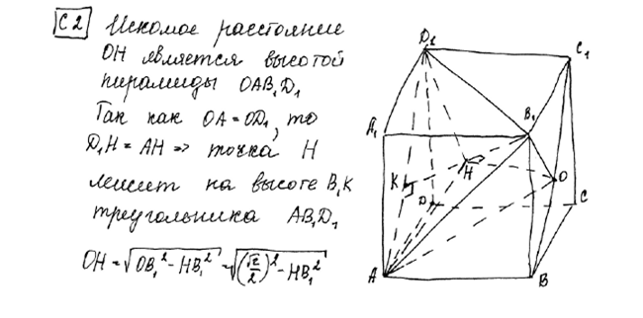 C2 Искомое расстояние
OH является высотой
пирамиды OAB₁D₁
Так как OA = OD₁, то
D₁H = AH => точка H
лежит на высоте B₁K
треугольника AB₁D₁
OH = √(OB₁² - HB₁²) = √((√2/2)² - HB₁²)
D₁
C₁
A₁
B₁
K
H
O
D
C
A
B